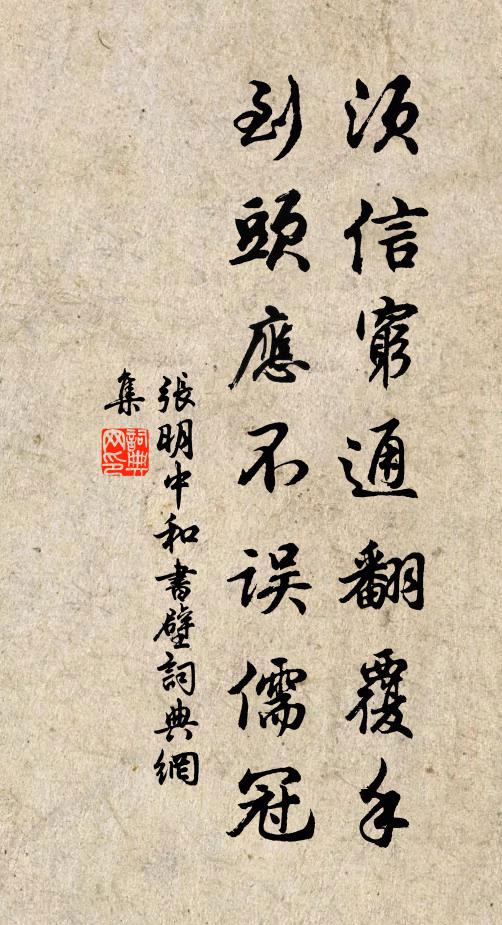 须信窮通翻覆手
到頭應不误儒冠
張明中和書壁詞典網
集
詞典網印